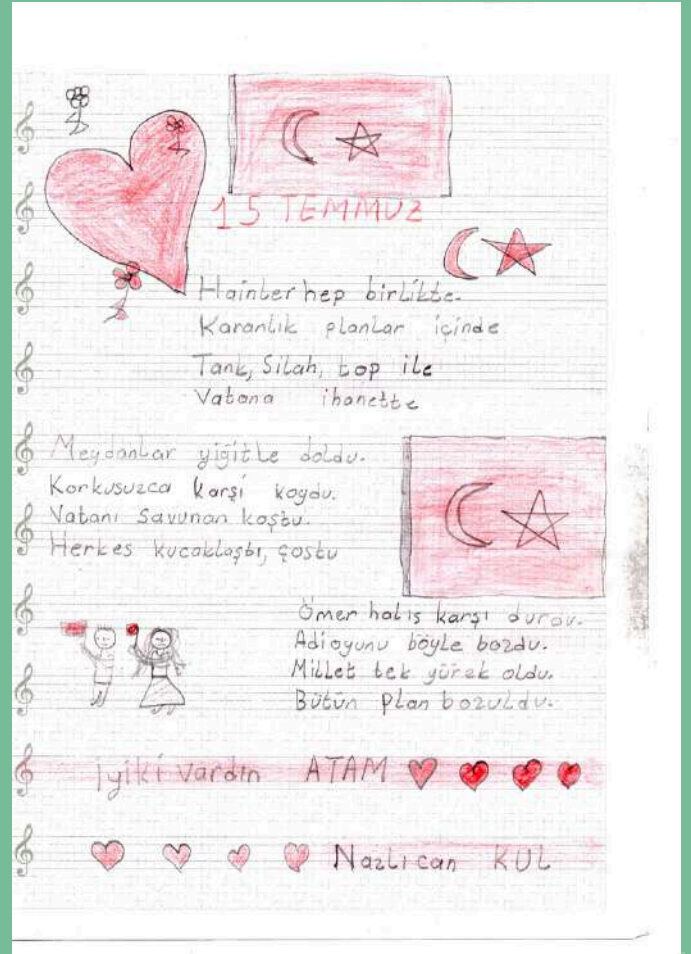 15 TEMMUZ
Hainler hep birlikte.
Karanlık planlar içinde
Tank, Silah, top ile
Vatana ihanette
Meydanlar yiğitle doldu.
Korkusuzca karşi koydu.
Vatanı Savunan koştu.
Herkes kucaklaştı, çoştu
Ömer halis karşı durdu.
Adioyunu böyle bozdu.
Millet tek yürek oldu.
Bütün plan bozuldu.
iyiki vardın ATAM
Nazlıcan KUL